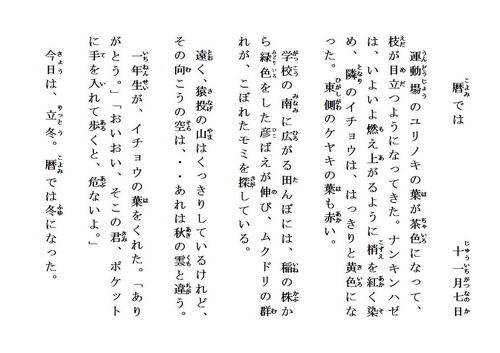 暦では　十一月七日
運動場のユリノキの葉が茶色になって、
枝が目立つようになってきた。ナンキンハゼ
は、いよいよ燃え上がるように梢を紅く染
め、隣のイチョウは、はっきりと黄色にな
った。東側のケヤキの葉も赤い。
学校の南に広がる田んぼには、稲の株か
ら緑色をした彦ばえが伸び、ムクドリの群
れが、こぼれたモミを探している。
遠く、猿投の山はくっきりしているけれど、
その向こうの空は、・・あれは秋の雲と違う。
一年生が、イチョウの葉をくれた。「あり
がとう。」「おいおい、そこの君、ポケット
に手を入れて歩くと、危ないよ。」
今日は、立冬。暦では冬になった。